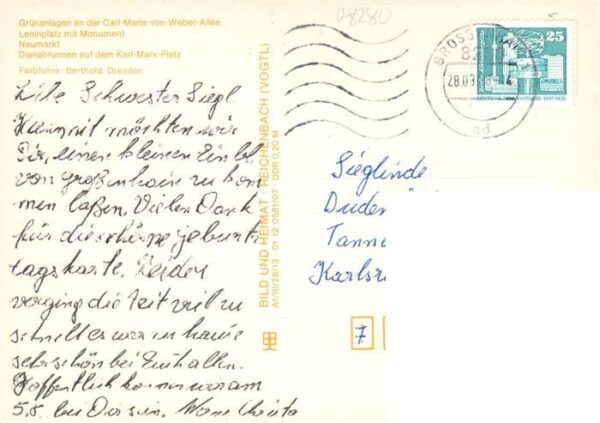 Grünanlagen an der Carl-Maria-von-Weber-Allee
Leninplatz mit Monument
Neumarkt
Dianabrunnen auf dem Karl-Marx-Platz
Farbfotos: Berthold, Dresden
08280
25
28.03
Liebe Schwester Siegl.
Hiermit möchten wir
Dir, einen kleinen
von Großenhain zu kom
men laßen. Vielen Dank
für die schöne geburts
tagskarte. Leider
verging die Zeit viel zu
schnell es war
sehr schön bei
Hoffentlich können wir am
5.8. bei Dir sein.
BILD UND HEIMAT · REICHENBACH (VOGTL)
A1/III/26/13 · 01 12 0581/07 · DDR 0,20 M
Sieglinde
Duden
Tanne
Karlsr
7